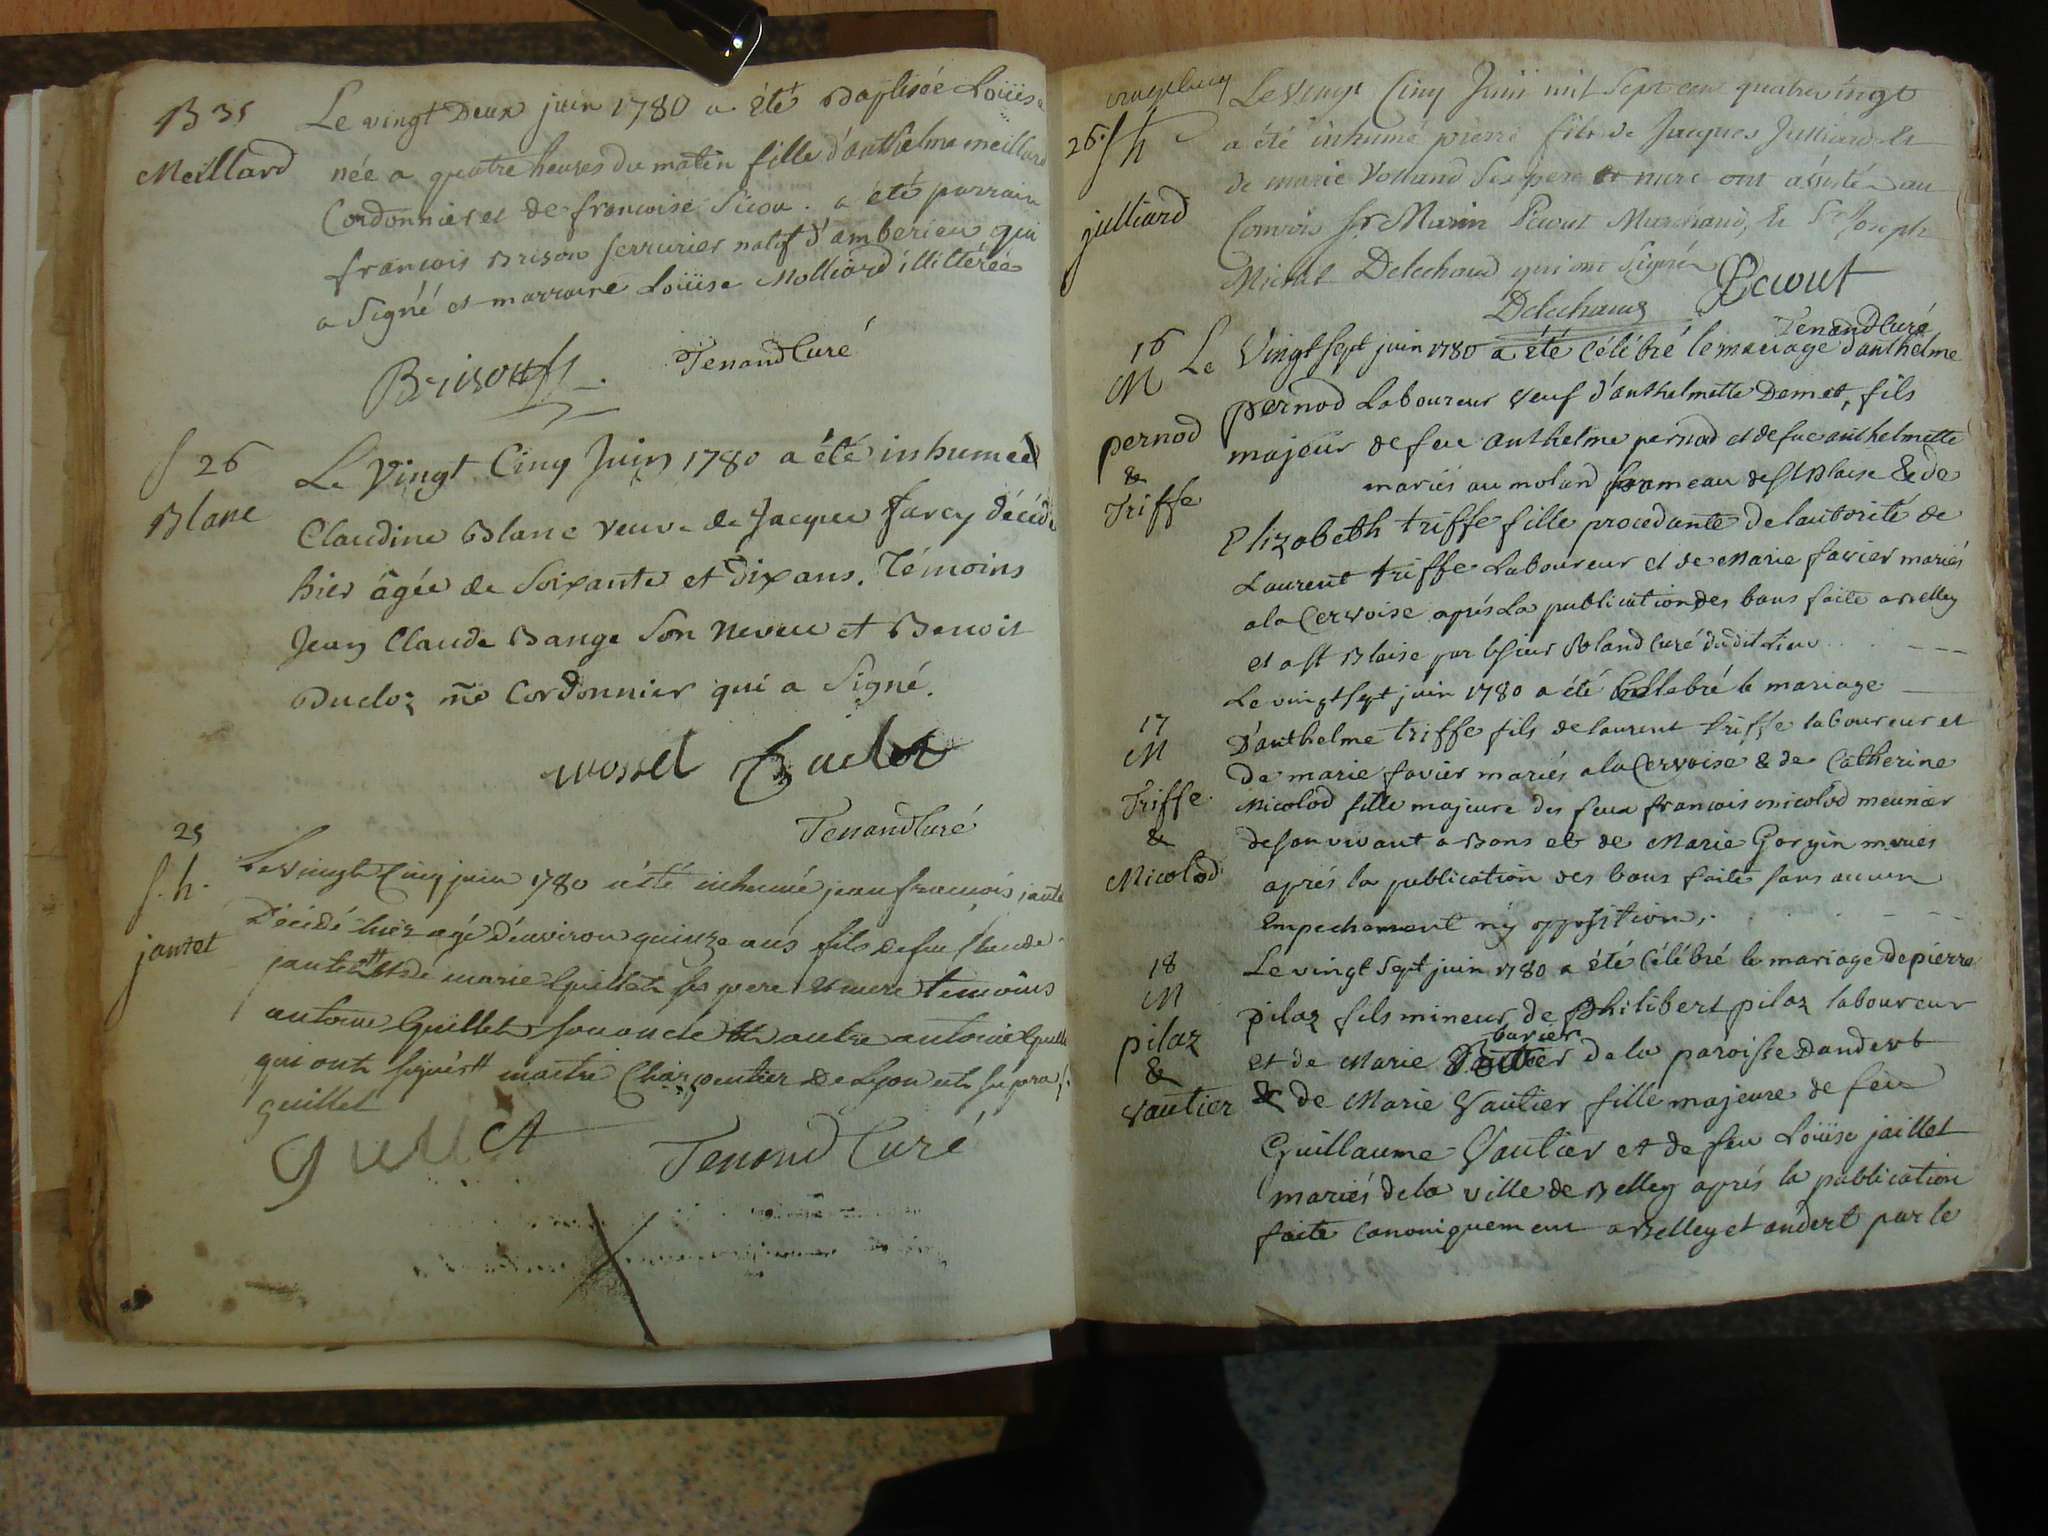 B 35
Meillard
Le vingt Deux juin 1780 a été Baptisée Loüise
née a quatre heures du matin fille d'anthelme meillard
Cordonnier et de francoise Sicou . a été parrain
francois Brison serrurier natif d'amberieu qui
a Signé et marraine Loüise Molliard illitérée
Brison
Tenand Curé
S 26
Blanc
Le Vingt Cinq Juin 1780 a été inhumée
Claudine Blanc veuve de Jacques farcy décédé
hier âgée de Soixante et Dix ans. Témoins
Jean Claude Bange Son Neveu et Benoit
Ducloz me Cordonnier qui a Signé.
Ducloz
Tenand Curé
25
S. h.
jantet
Le vingt Cinq juin 1780 a été inhumé jean francois jantet
Décédé hier agé d'environ quinze ans fils de feu Claude
jantet et de marie Guillet ses pere et mere temoins
antoine Guillet son oncle et autre antoine Guillet
qui ont signés maitre Charpentier De Lyon ut supra
guillet
Guillet
Tenand Curé
26. S h
julliard
Le Vingt Cinq Juin mil Sept cen quatrevingt
a été inhumé pierre fils de Jacques Julliard et
de marie Volland Ses pere et mere ont assisté au
Convoi Sr Marin Pecout Marchand, et Sr Joseph
Michel Delechaud qui ont Signés
Pecout
Delechaud
Tenand Curé
16
M
pernod
&
Triffe
Le Vingt Sept juin 1780 a été Célébré le mariage d'anthelme
pernod Laboureur Veuf d'anthelmette Demet, fils
majeur de feu anthelme pernod et de feue anthelmette
mariés au moland hameau de St Blaise & de
Elizabeth triffe fille procedante de lautorité de
Laurent triffe Laboureur et de Marie favier mariés
a la Cervoise aprés La publication des bans faite a Belley
et a St Blaise par le Sieur Bland Curé dudit Lieu
17
M
Triffe
&
Micolod
Le vingt Sept juin 1780 a été Cellebré le mariage
D'anthelme triffe fils de laurent triffe laboureur et
de marie favier mariés a la Cervoise & de Catherine
Micolod fille majeure des feux francois micolod meunier
de son vivant a Bons et de Marie Gorgin mariés
aprés la publication des bans faite sans aucun
Empechement ny opposition.
18
M
pilaz
&
Vautier
Le vingt Sept juin 1780 a été Célébré le mariage de pierre
pilaz fils mineur de Philibert pilaz laboureur
bavier
et de Marie de la paroisse Dandert
& de Marie Vautier fille majeure de feu
Guillaume Vautier et de feu Loüise jaillet
mariés de la ville de Belley aprés la publication
faite Canoniquement a Belley et andert par le